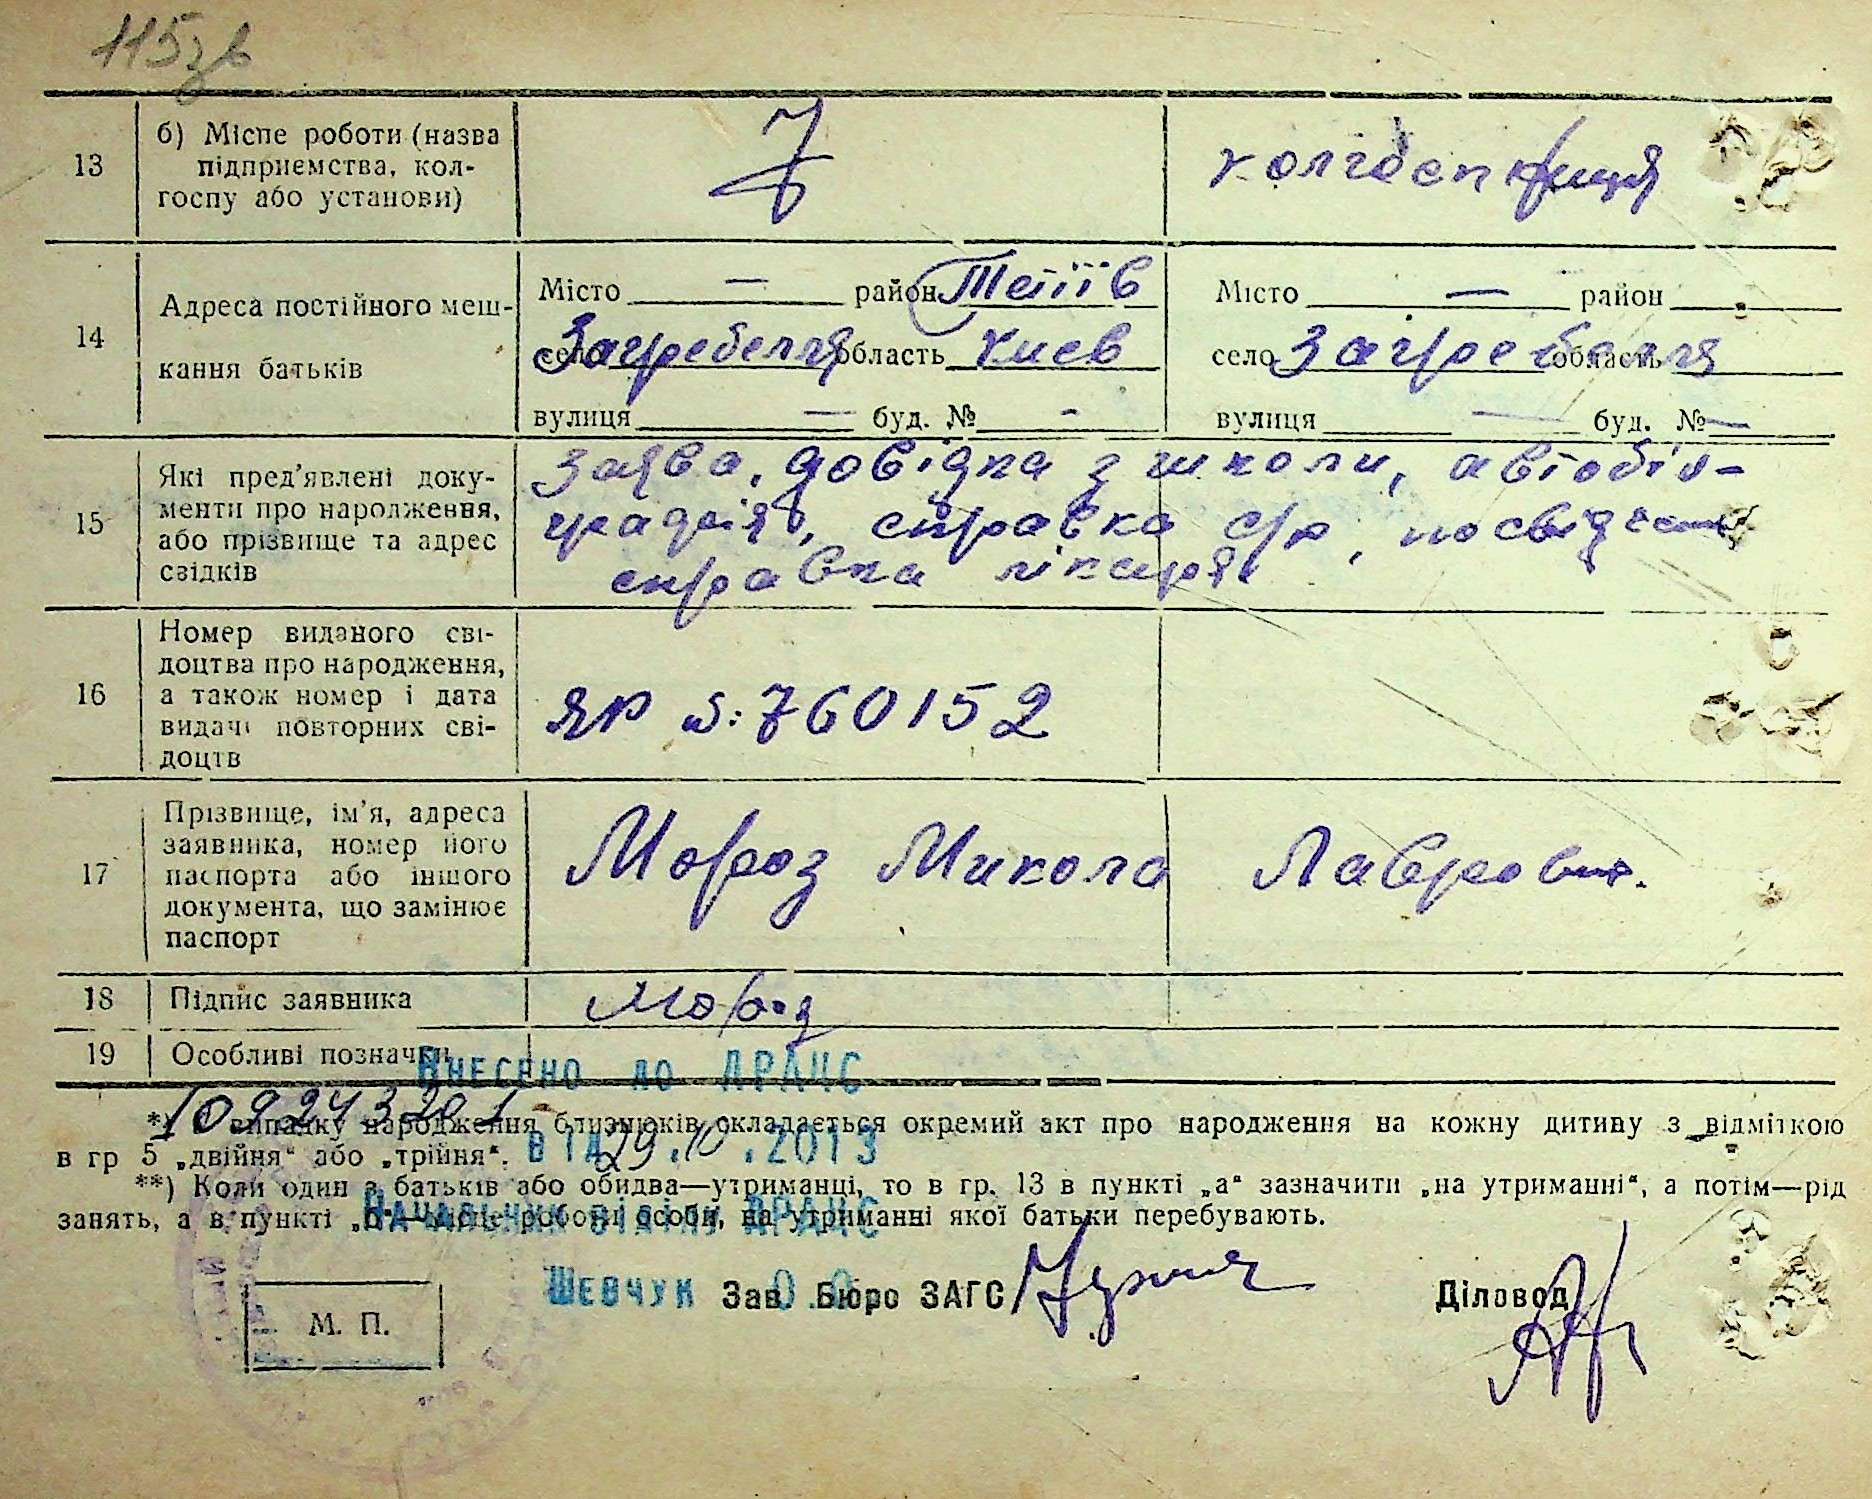 115зв
13 б) Місце роботи (назва підприємства, колгоспу або установи) колгоспниця
14 Адреса постійного мешкання батьків
Місто — район Тетіїв Місто — район
село Загребелля область Киев село Загребелля область
вулиця — буд. № - вулиця — буд. № —
15 Які пред'явлені документи про народження, або прізвище та адрес свідків
заява, довідка з школи, автобіо-
графія, справка с/р, посвідчення
справка лікаря
16 Номер виданого свідоцтва про народження, а також номер і дата видачі повторних свідоцтв
ЯР №: 760152
17 Прізвище, ім'я, адреса заявника, номер його паспорта або іншого документа, що замінює паспорт
Мороз Микола Лаврович.
18 Підпис заявника Мороз
19 Особливі позначки
Внесено до ДРАЦС
*) У випадку народження близнюків складається окремий акт про народження на кожну дитину з відміткою
в гр 5 „двійня“ або „трійня“.
від 29.10.2013
**) Коли один з батьків або обидва—утриманці, то в гр. 13 в пункті „а“ зазначити „на утриманні“, а потім—рід
занять, а в пункті „б“—місце роботи особи, на утриманні якої батьки перебувають.
Начальник відділу ДРАЦС
Шевчук О.О.
Зав Бюро ЗАГС Діловод
М. П.